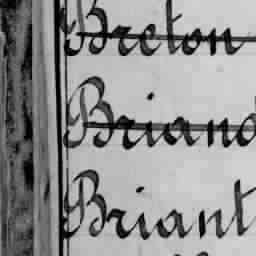 Breton
Briand
Briant